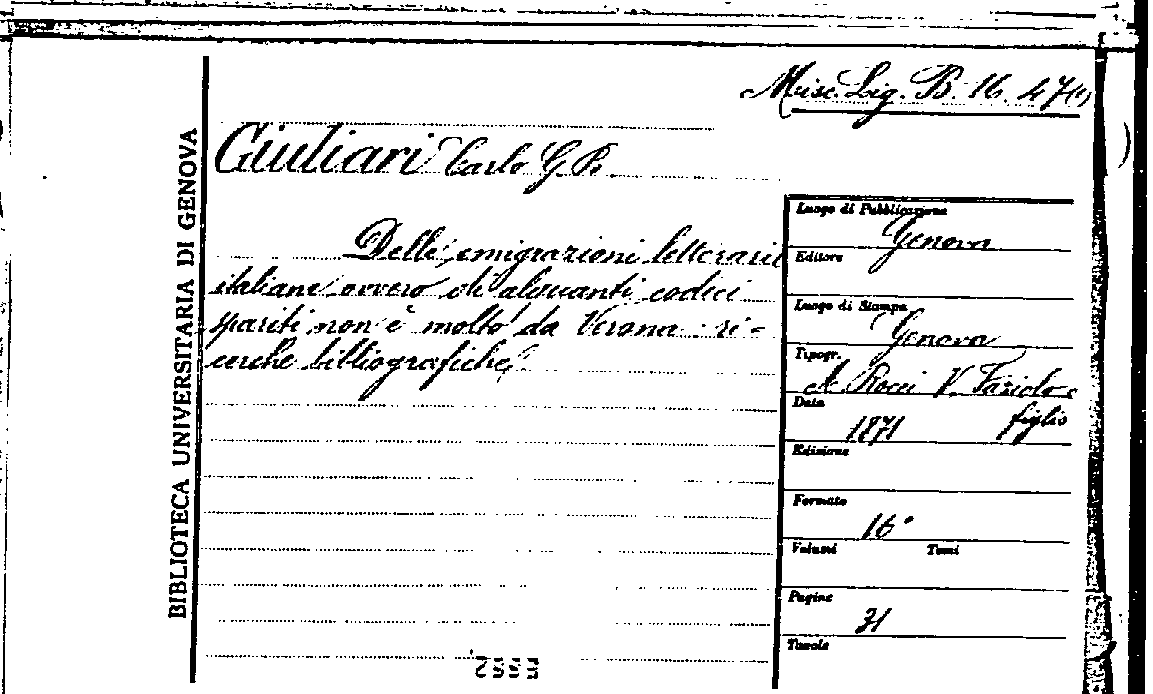 Misc. Lig. B. 16. 47
BIBLIOTECA UNIVERSITARIA DI GENOVA
Giuliari Carlo G. B.
Delle emigrazioni letterarie
italiane ovvero di alquanti codici
spariti non è molto da Verona: ri-
cerche bibliografiche
Luogo di Pubblicazione
Genova
Editore
Luogo di Stampa
Genova
Tipogr.
Rocci V. Faziola e
figlio
Data
1871
Edizione
Formato
16°
Volumi Tomi
Pagine
31
Tavole